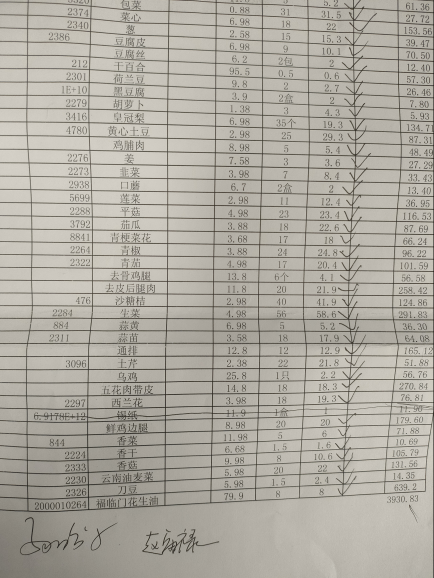 包菜 5.2 61.36
2374 菜心 0.88 31 31.5 27.72
2340 葱 6.98 18 22 153.56
2386 豆腐皮 2.58 15 15.3 39.47
豆腐丝 6.98 9 10.1 70.50
212 干百合 6.2 2包 2 12.40
2301 荷兰豆 95.5 0.5 0.6 57.30
1E+10 黑豆腐 9.8 2 2.7 26.46
2279 胡萝卜 3.9 2盒 2 7.80
3416 皇冠梨 1.38 3 4.3 5.93
4780 黄心土豆 6.98 35个 19.3 134.71
鸡脯肉 2.98 25 29.3 87.31
2276 姜 8.98 5 5.4 48.49
2273 韭菜 7.58 3 3.6 27.29
2938 口蘑 3.98 7 8.4 33.43
5699 莲菜 6.7 2盒 2 13.40
2288 平菇 2.98 11 12.4 36.95
3792 茄瓜 4.98 23 23.4 116.53
8841 青梗菜花 3.88 18 22.6 87.69
2264 青椒 3.68 17 18 66.24
2322 青茄 3.88 24 24.8 96.22
去骨鸡腿 4.98 17 20.4 101.59
去皮后腿肉 13.8 6个 4.1 56.58
476 沙糖桔 11.8 20 21.9 258.42
2284 生菜 2.98 40 41.9 124.86
884 蒜黄 4.98 56 58.6 291.83
2311 蒜苗 6.98 5 5.2 36.30
通排 3.58 18 17.9 64.08
3096 土芹 12.8 12 12.9 165.12
乌鸡 2.38 22 21.8 51.88
五花肉带皮 25.8 1只 2.2 56.76
2297 西兰花 14.8 18 18.3 270.84
6.9178E+12 锡纸 3.98 18 19.3 76.81
鲜鸡边腿 11.9 1盒 1 11.90
844 香菜 8.98 20 20 179.60
2224 香干 11.98 5 6 71.88
2333 香菇 6.68 1.5 1.6 10.69
2230 云南油麦菜 9.98 8 10.6 105.79
2326 刀豆 5.98 20 22 131.56
2000010264 福临门花生油 5.98 1.5 2.4 14.35
79.9 8 8 639.2
3930.83